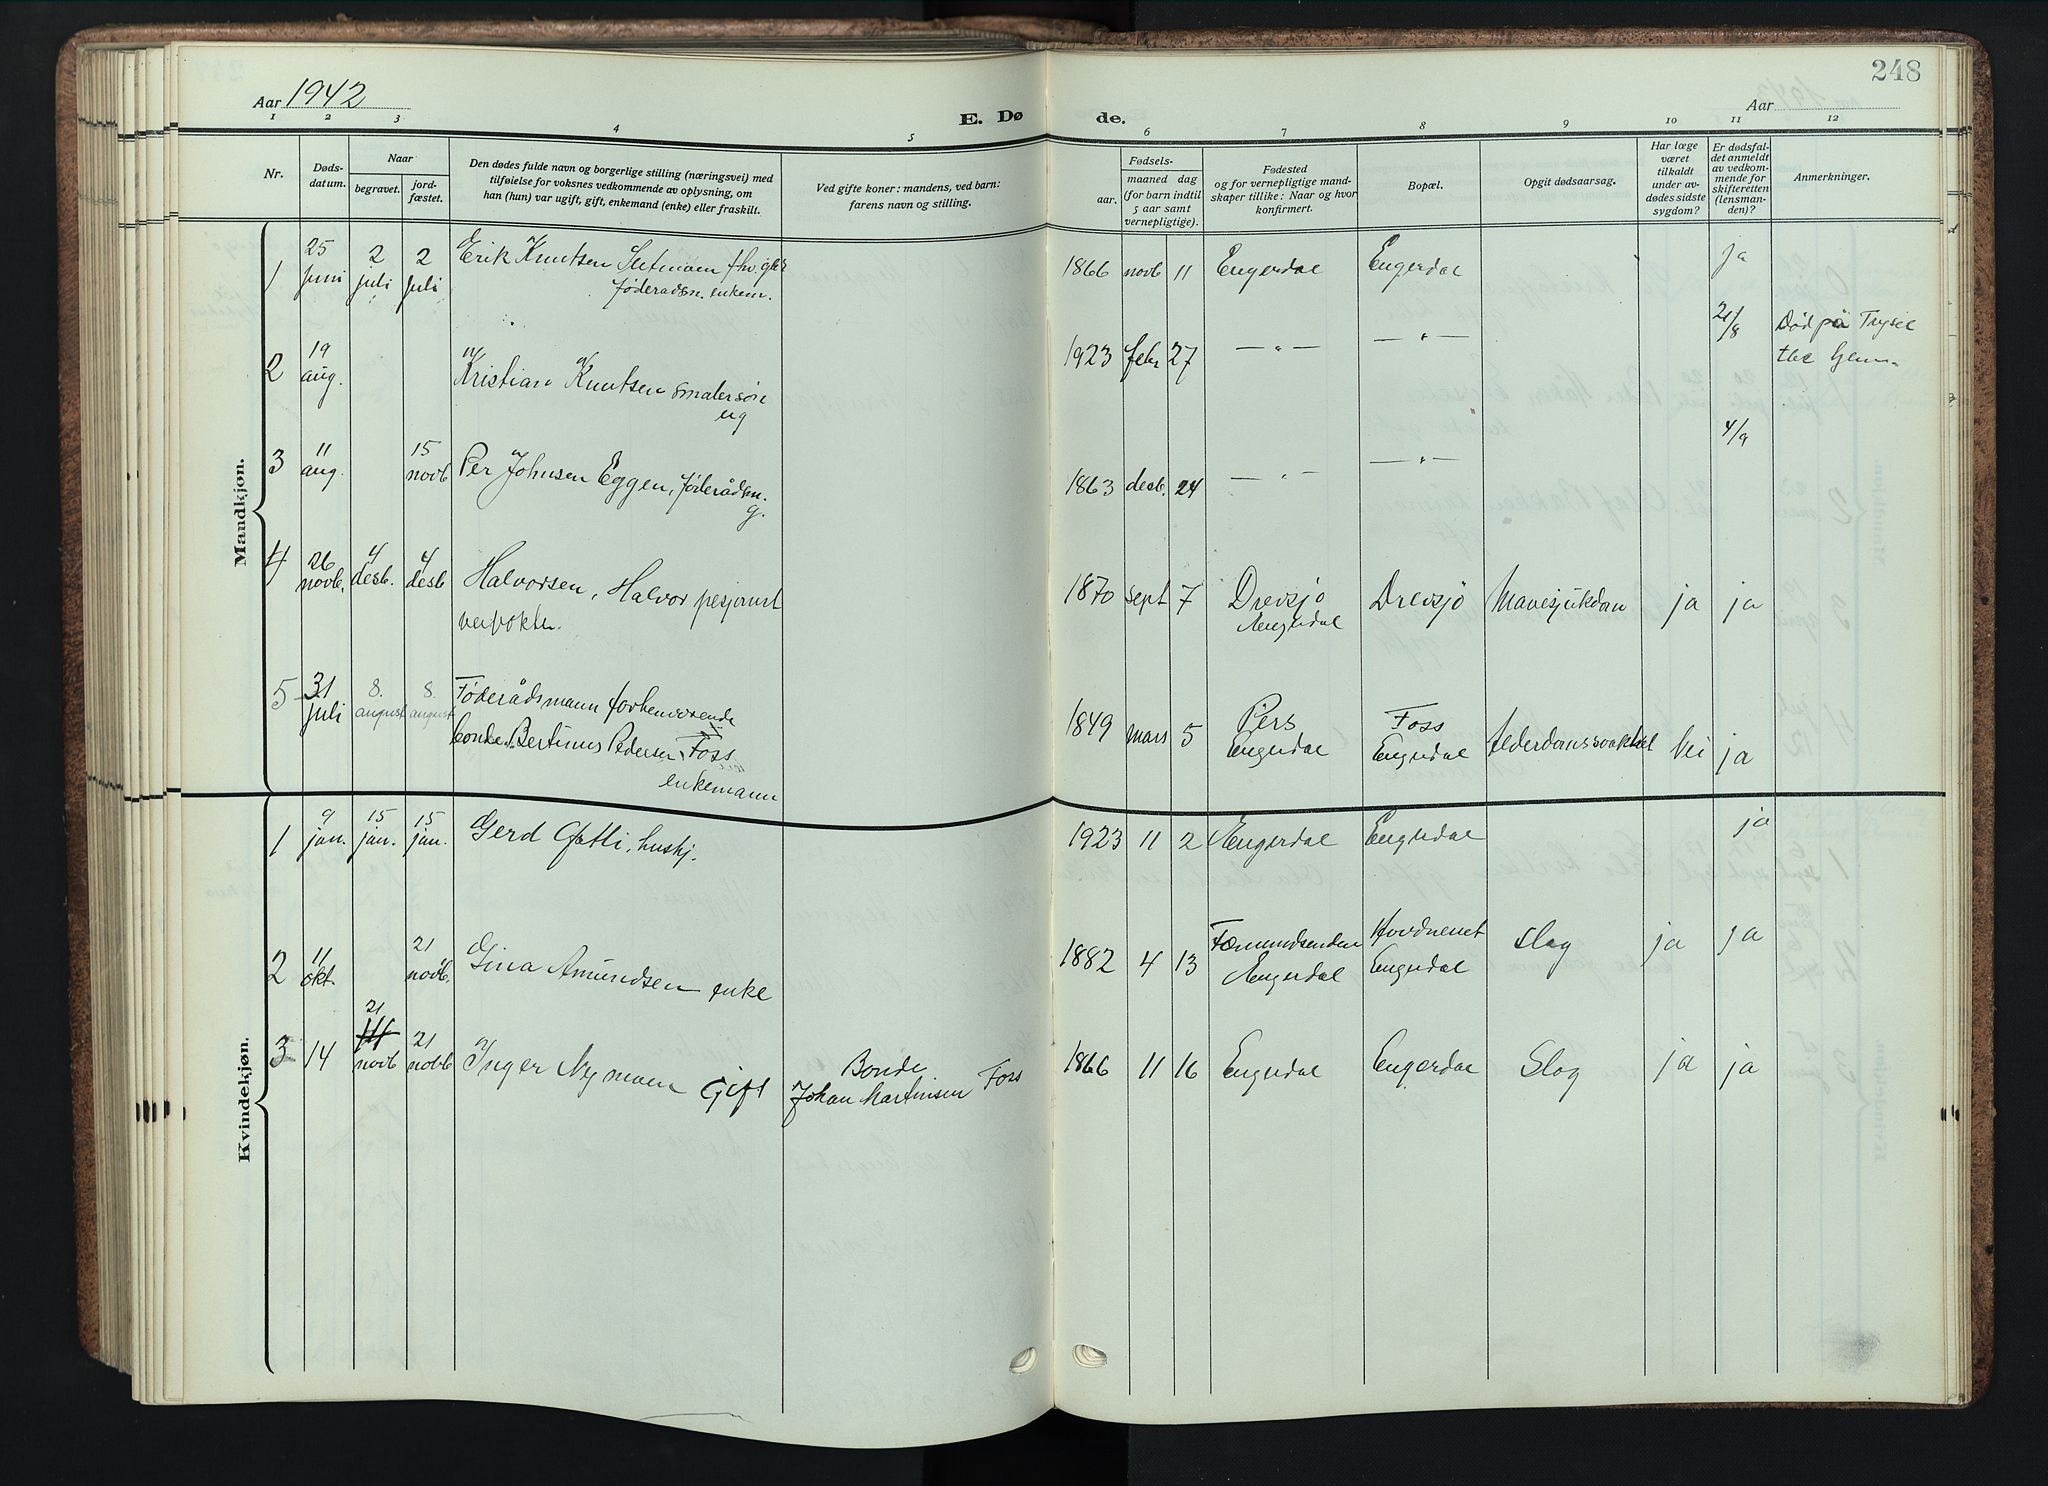 248
Aar 1942
Aar
E. Dø de.
1 2 3 4 5 6 7 8 9 10 11 12
Nr.
Døds-
datum.
Naar
begravet.
jord-
fæstet.
Den dødes fulde navn og borgerlige stilling (næringsvei) med
tilføielse for voksnes vedkommende av oplysning, om
han (hun) var ugift, gift, enkemand (enke) eller fraskilt.
Ved gifte koner: mandens, ved barn:
farens navn og stilling.
Fødsels-
aar.
maaned dag
(for barn indtil
5 aar samt
vernepligtige).
Fødested
og for vernepligtige mand-
skaper tillike: Naar og hvor
konfirmert.
Bopæl.
Opgit dødsaarsag.
Har læge
været
tilkaldt
under av-
dødes sidste
sygdom?
Er dødsfal-
det anmeldt
av vedkom-
mende for
skifteretten
(lensman-
den)?
Anmerkninger.
Mandkjøn.
1 25 juni 2 juli 2 juli Erik Knutsen
føderådsm. enkem.
1866 novb 11 Engerdal Engerdal ja
2 19 aug. Kristian Knutsen
ug
1923 febr 27 — " — — " — 21/8 Død på
3 11 aug. 15 novb Per Johnsen Eggen, føderådsm.
g.
1863 desb. 24 — " — — " — 4/9
4 26 novb. 4 desb. 4 desb Halvorsen, Halvor
1870 sept 7 Drevsjø
Engerdal
Drevsjø Mavesjukdom ja ja
5 31 juli 8. august 8. august Føderådsmann forhenværende
bonde Bertinus Pedersen Foss
enkemann
1849 mars 5 Pers
Engerdal
Foss
Engerdal
Alderdomssvakhet Nei ja
Kvindekjøn.
1 9 jan. 15 jan. 15 jan. Gerd hushj.
1923 11 2 Engerdal Engerdal ja
2 11 okt. 21 novb. Gina Amundsen enke
1882 4 13 Femundsenden
Engerdal
Engerdal
Slag ja ja
3 14 21 novb 21 novb Inger Nymoen Gift
Bonde
Johan Martinsen Foss
1866 11 16 Engerdal Engerdal Slag ja ja